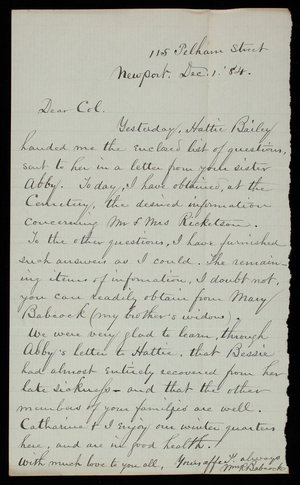 115 Pelham Street
Newport. Dec. 1. '84.
Dear Col.
Yesterday, Hattie Bailey
handed me the enclosed list of questions,
sent to her in a letter from your sister
Abby. Today, I have obtained, at the
Cemetery, the desired information
concerning Mr & Mrs Ricketson.
To the other questions, I have furnished
such answers as I could. The remain-
ing items of information, I doubt not,
you can readily obtain from Mary
Babcock (my brother's widow).
We were very glad to learn, through
Abby's letter to Hattie, that Bessie
had almost entirely recovered from her
late sickness - and that the other
members of your families are well.
Catharine & I enjoy our winter quarters
here, and are in good health.
With much love to you all, Yours affecly always
Babcock